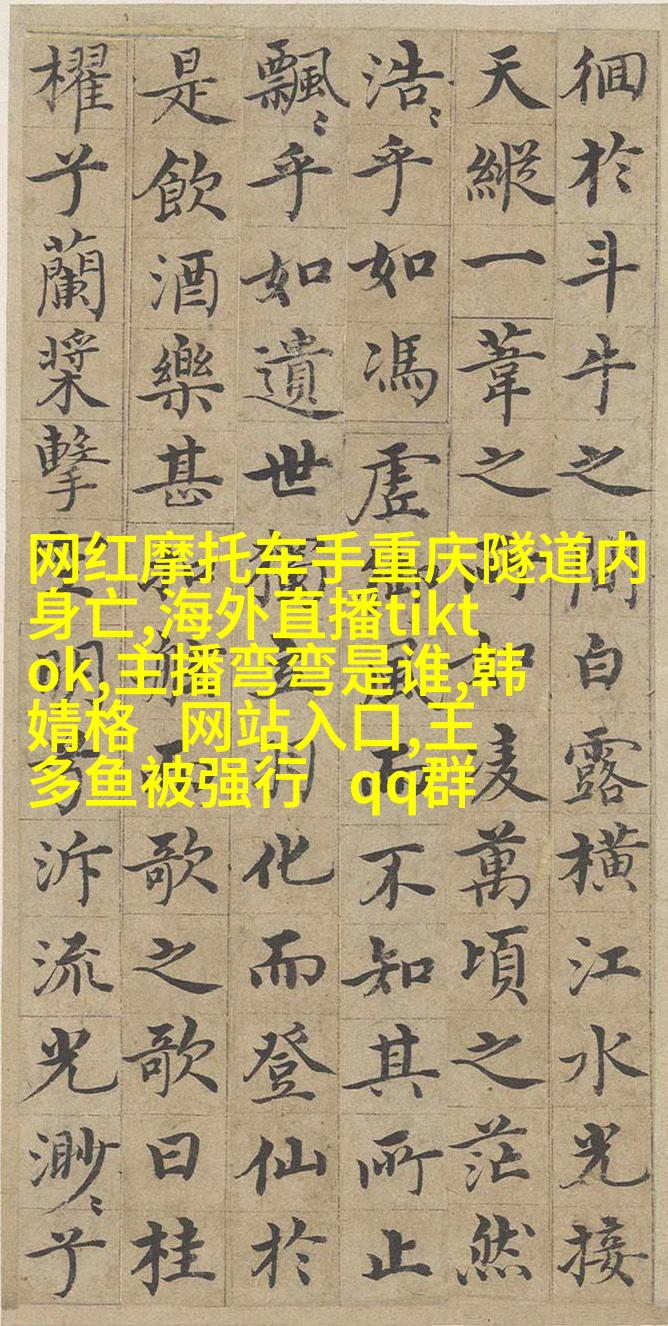 徊於斗牛之間白露橫江水光接
天縱一葦之所如凌萬頃之茫然
浩〻乎如馮虛御風而不知其所止
飄〻乎如遺世獨立羽化而登仙於
是飲酒樂甚扣舷而歌之歌曰桂
櫂兮蘭槳擊空明兮泝流光渺〻兮
网红摩托车手重庆隧道内
身亡,海外直播tikt
ok,主播弯弯是谁,韩
婧格 网站入口,王
多鱼被强行 qq群